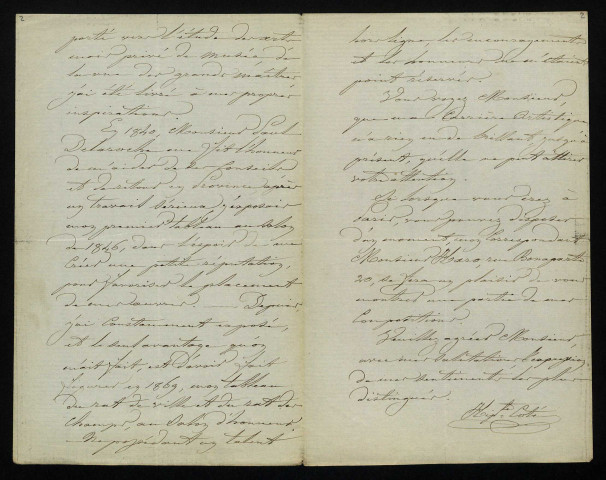 2
porté vers l'étude des arts
mais privé de musées, de
la vue des grands maîtres
j'ai été livré à mes propres
inspirations.
En 1840, Monsieur Paul
Delaroche me fit l'honneur
de m'aider de ses Conseils
et de retour en Provence, après
un travail sérieux j'exposais
mon premier tableau au Salon
de 1846, dans l'espoir de me
Créer une petite réputation,
pour favoriser le placement
de mes œuvres. — Depuis,
j'ai Constamment exposé,
et le seul avantage qu'on
m'ait fait, est d'avoir fait
figurer en 1869, mon tableau
Du rat de ville et du rat des
champs, au Salon d'honneur
Ne possédant un talent
2
hors ligne, les encouragements
et les honneurs m'étaient
point réservés.
Vous voyez Monsieur,
que ma Carrière Artistique
n'a rien eu de brillant jusqu'à
présent, qu'elle ne peut attirer
votre attention.
Si lorsque vous serez à
Paris, vous pouvez disposer
d'un moment, mon Correspondant
Monsieur Haro, rue Bonaparte
20, se fera un plaisir de vous
montrer une partie de mes
Compositions.
Veuillez agréer Monsieur,
avec mes salutations l'expression
de mes sentiments les plus
distingués.